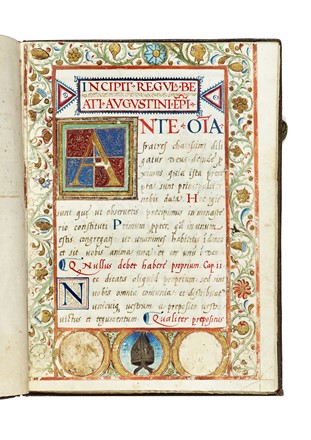 INCIPIT · REGUL · BE
ATI · AVGVSTINI · EPI ·
ANTE · OIA
fratres charissimi dili
gatur deus deinde p
ximus quia ista prece
pta sunt principaliter
nobis data
sunt que ut observetis precipimus in monaste
rio constituti Primum propter qd in unum
estis congregati ut unanimes habitetis in domo
et sit vobis anima una et cor unum in deo
Nullus debet habere proprium Cap ii
Non dicatis aliquid proprium sed sint
vobis omnia communia et distribuatur
unicuique vestrum a preposito vestro
victus et tegumentum Qualiter prepositus